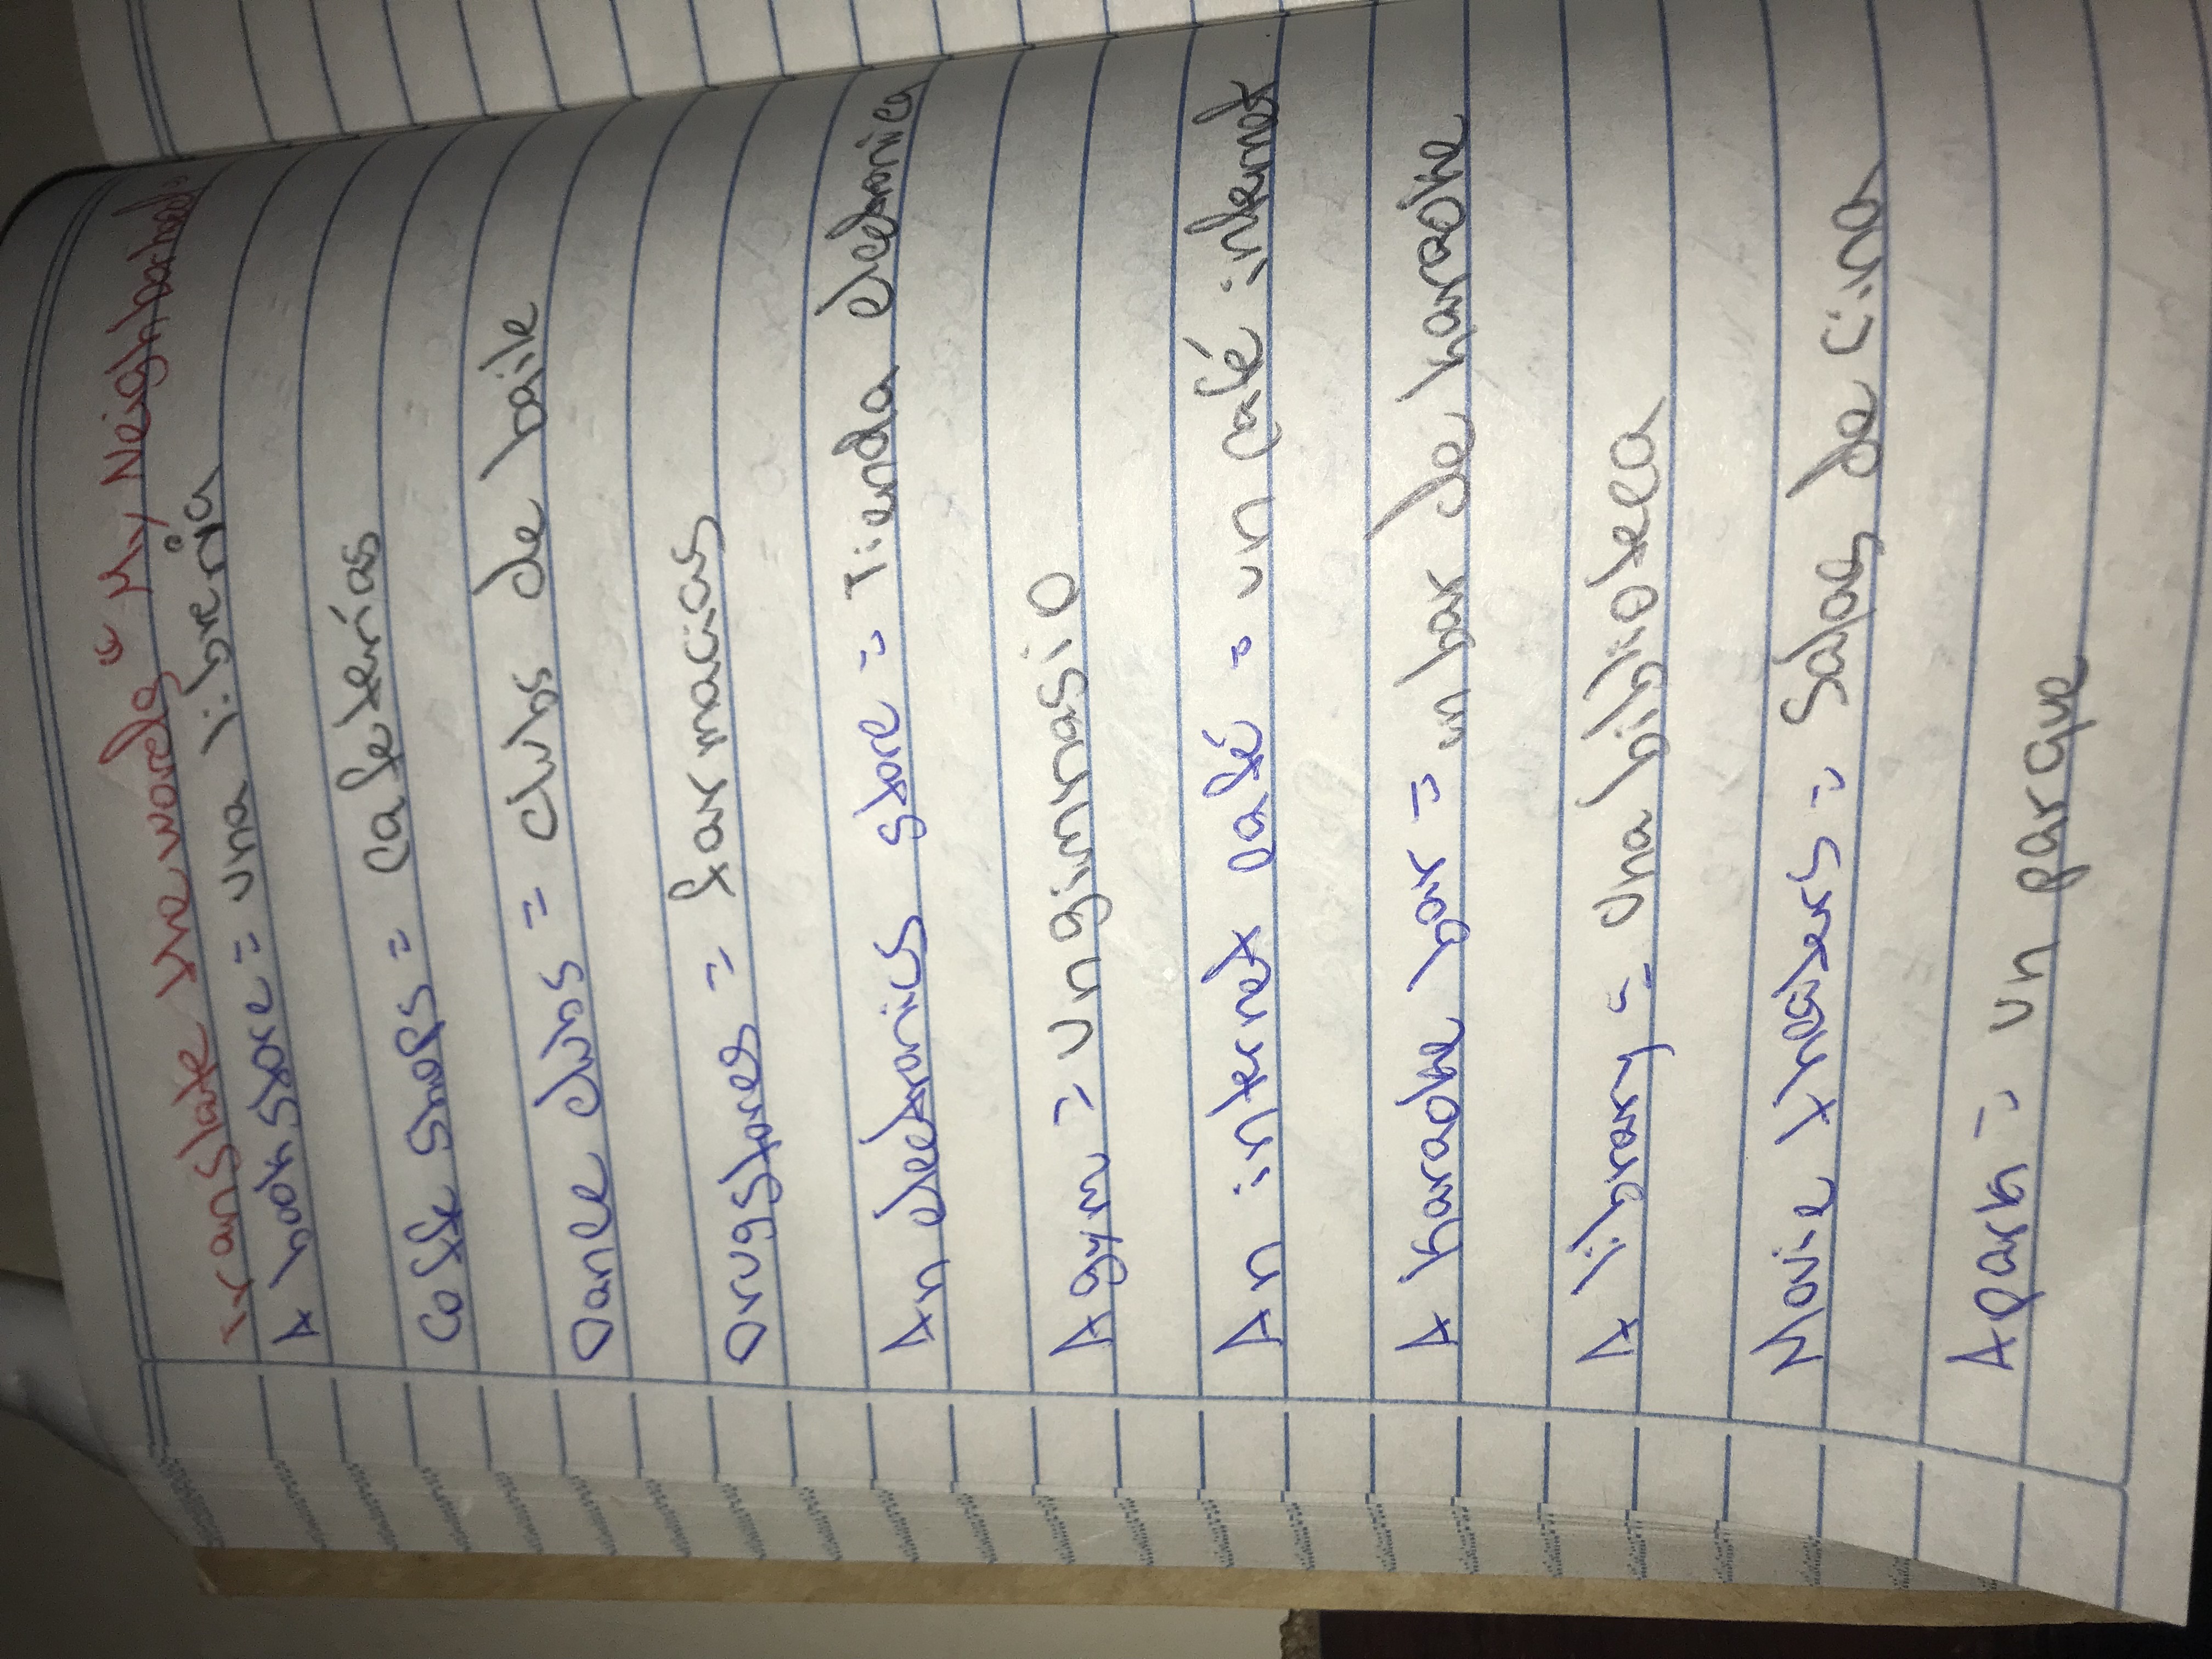 Translate the words " My Neighborhood.
A book store = una librería
Coffe shops = cafeterías
Dance clubs = clubs de baile
Drugstores = farmacias
An electronics store = Tienda electronica
A gym = un gimnasio
An internet café = un café internet
A karaoke bar = un bar de karaoke
A library = una biblioteca
Movie theaters = Salas de cina
A park = un parque